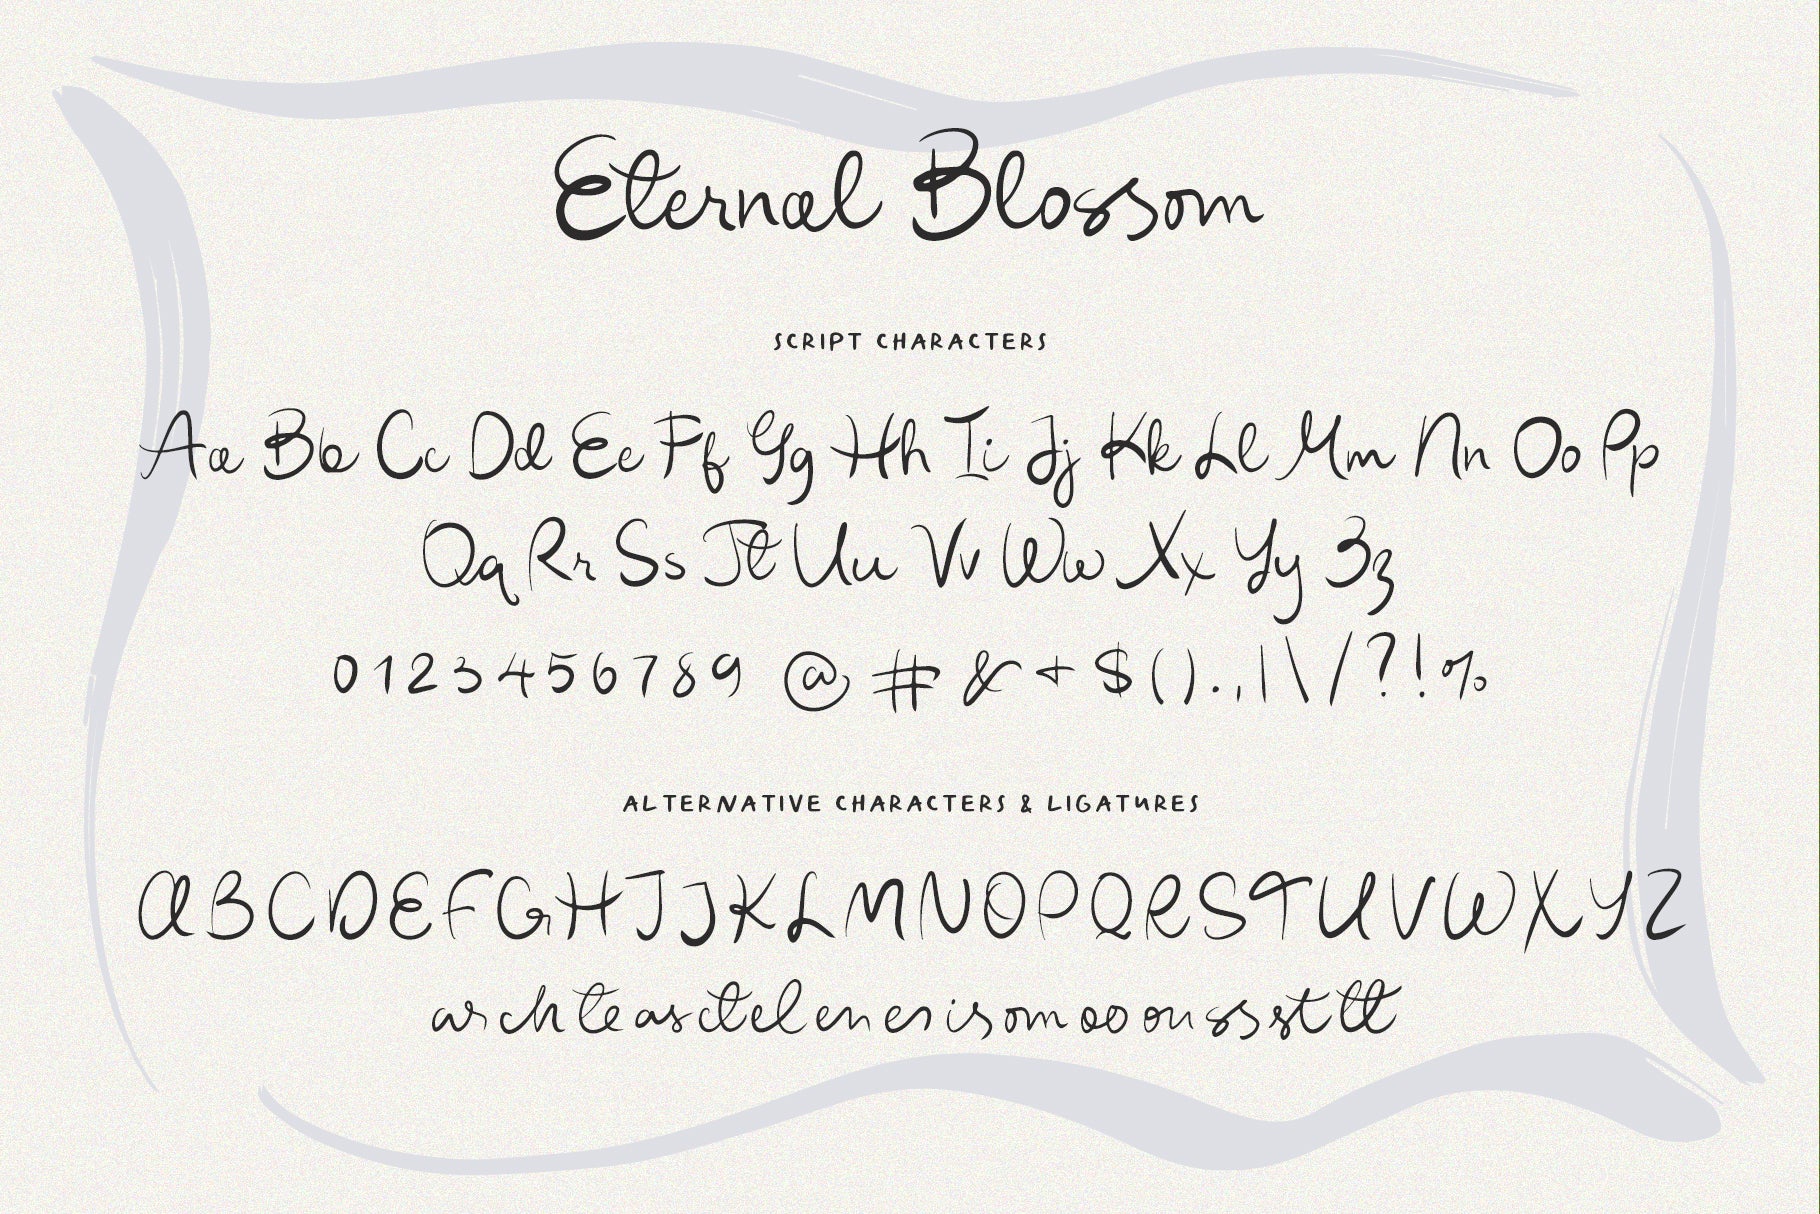 Eternal Blossom
SCRIPT CHARACTERS
Aa Bb Cc Dd Ee Ff Gg Hh Ii Jj Kk Ll Mm Nn Oo Pp
Qq Rr Ss Tt Uu Vv Ww Xx Yy Zz
0123456789 @ # & + $ ( ) . , | \ / ? ! %
ALTERNATIVE CHARACTERS & LIGATURES
ABCDEFGHIJKLMNOPQRSTUVWXYZ
ar ch te as ct el en er is om oo on ss st tt